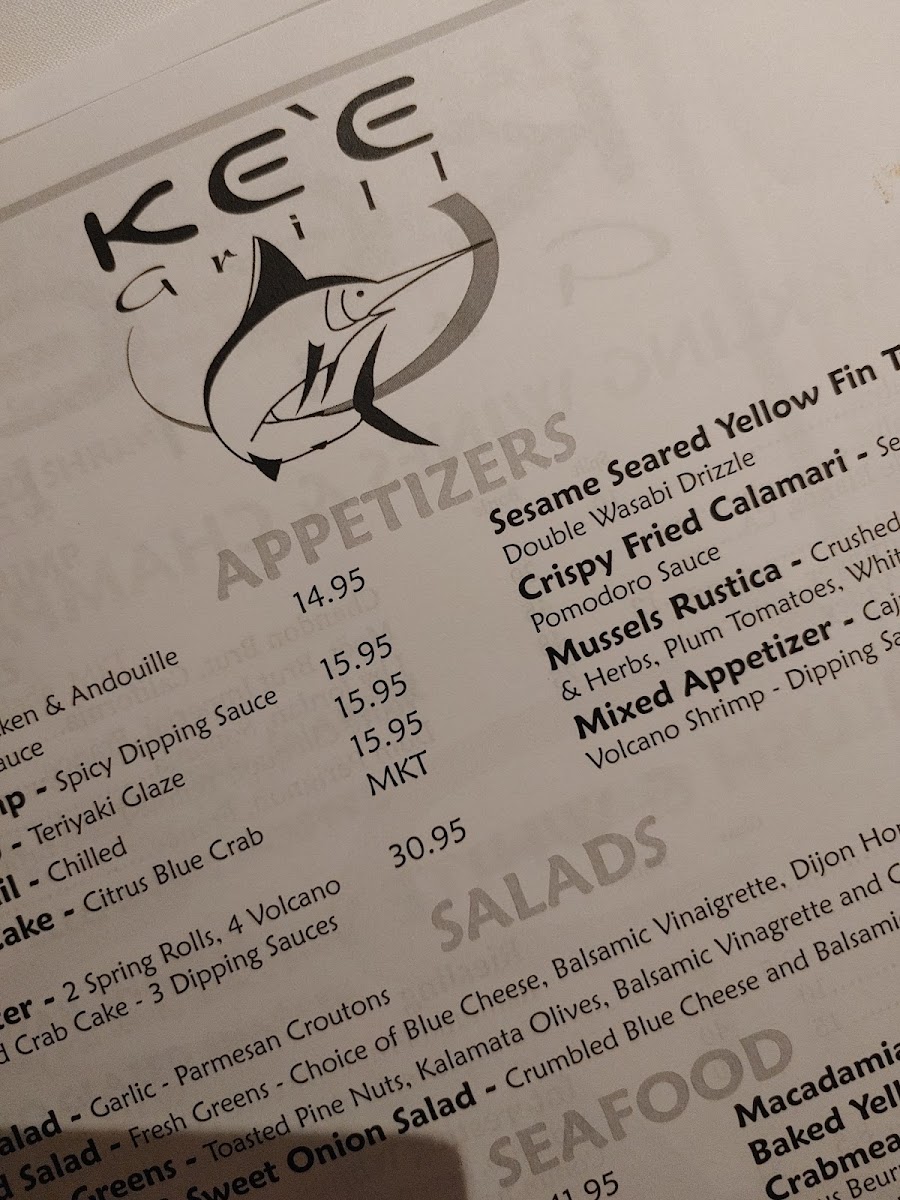 KE`E
Grill
APPETIZERS
14.95
& Andouille
- Spicy Dipping Sauce 15.95
- Teriyaki Glaze 15.95
- Chilled 15.95
- Citrus Blue Crab MKT
- 2 Spring Rolls, 4 Volcano 30.95
Crab Cake - 3 Dipping Sauces
Sesame Seared Yellow Fin
Double Wasabi Drizzle
Crispy Fried Calamari -
Pomodoro Sauce
Mussels Rustica - Crushed
& Herbs, Plum Tomatoes,
Mixed Appetizer -
Volcano Shrimp - Dipping
SALADS
- Garlic - Parmesan Croutons
Salad - Fresh Greens - Choice of Blue Cheese, Balsamic Vinaigrette, Dijon
Greens - Toasted Pine Nuts, Kalamata Olives, Balsamic Vinagrette and
Sweet Onion Salad - Crumbled Blue Cheese and Balsamic
SEAFOOD
Macadamia
Baked